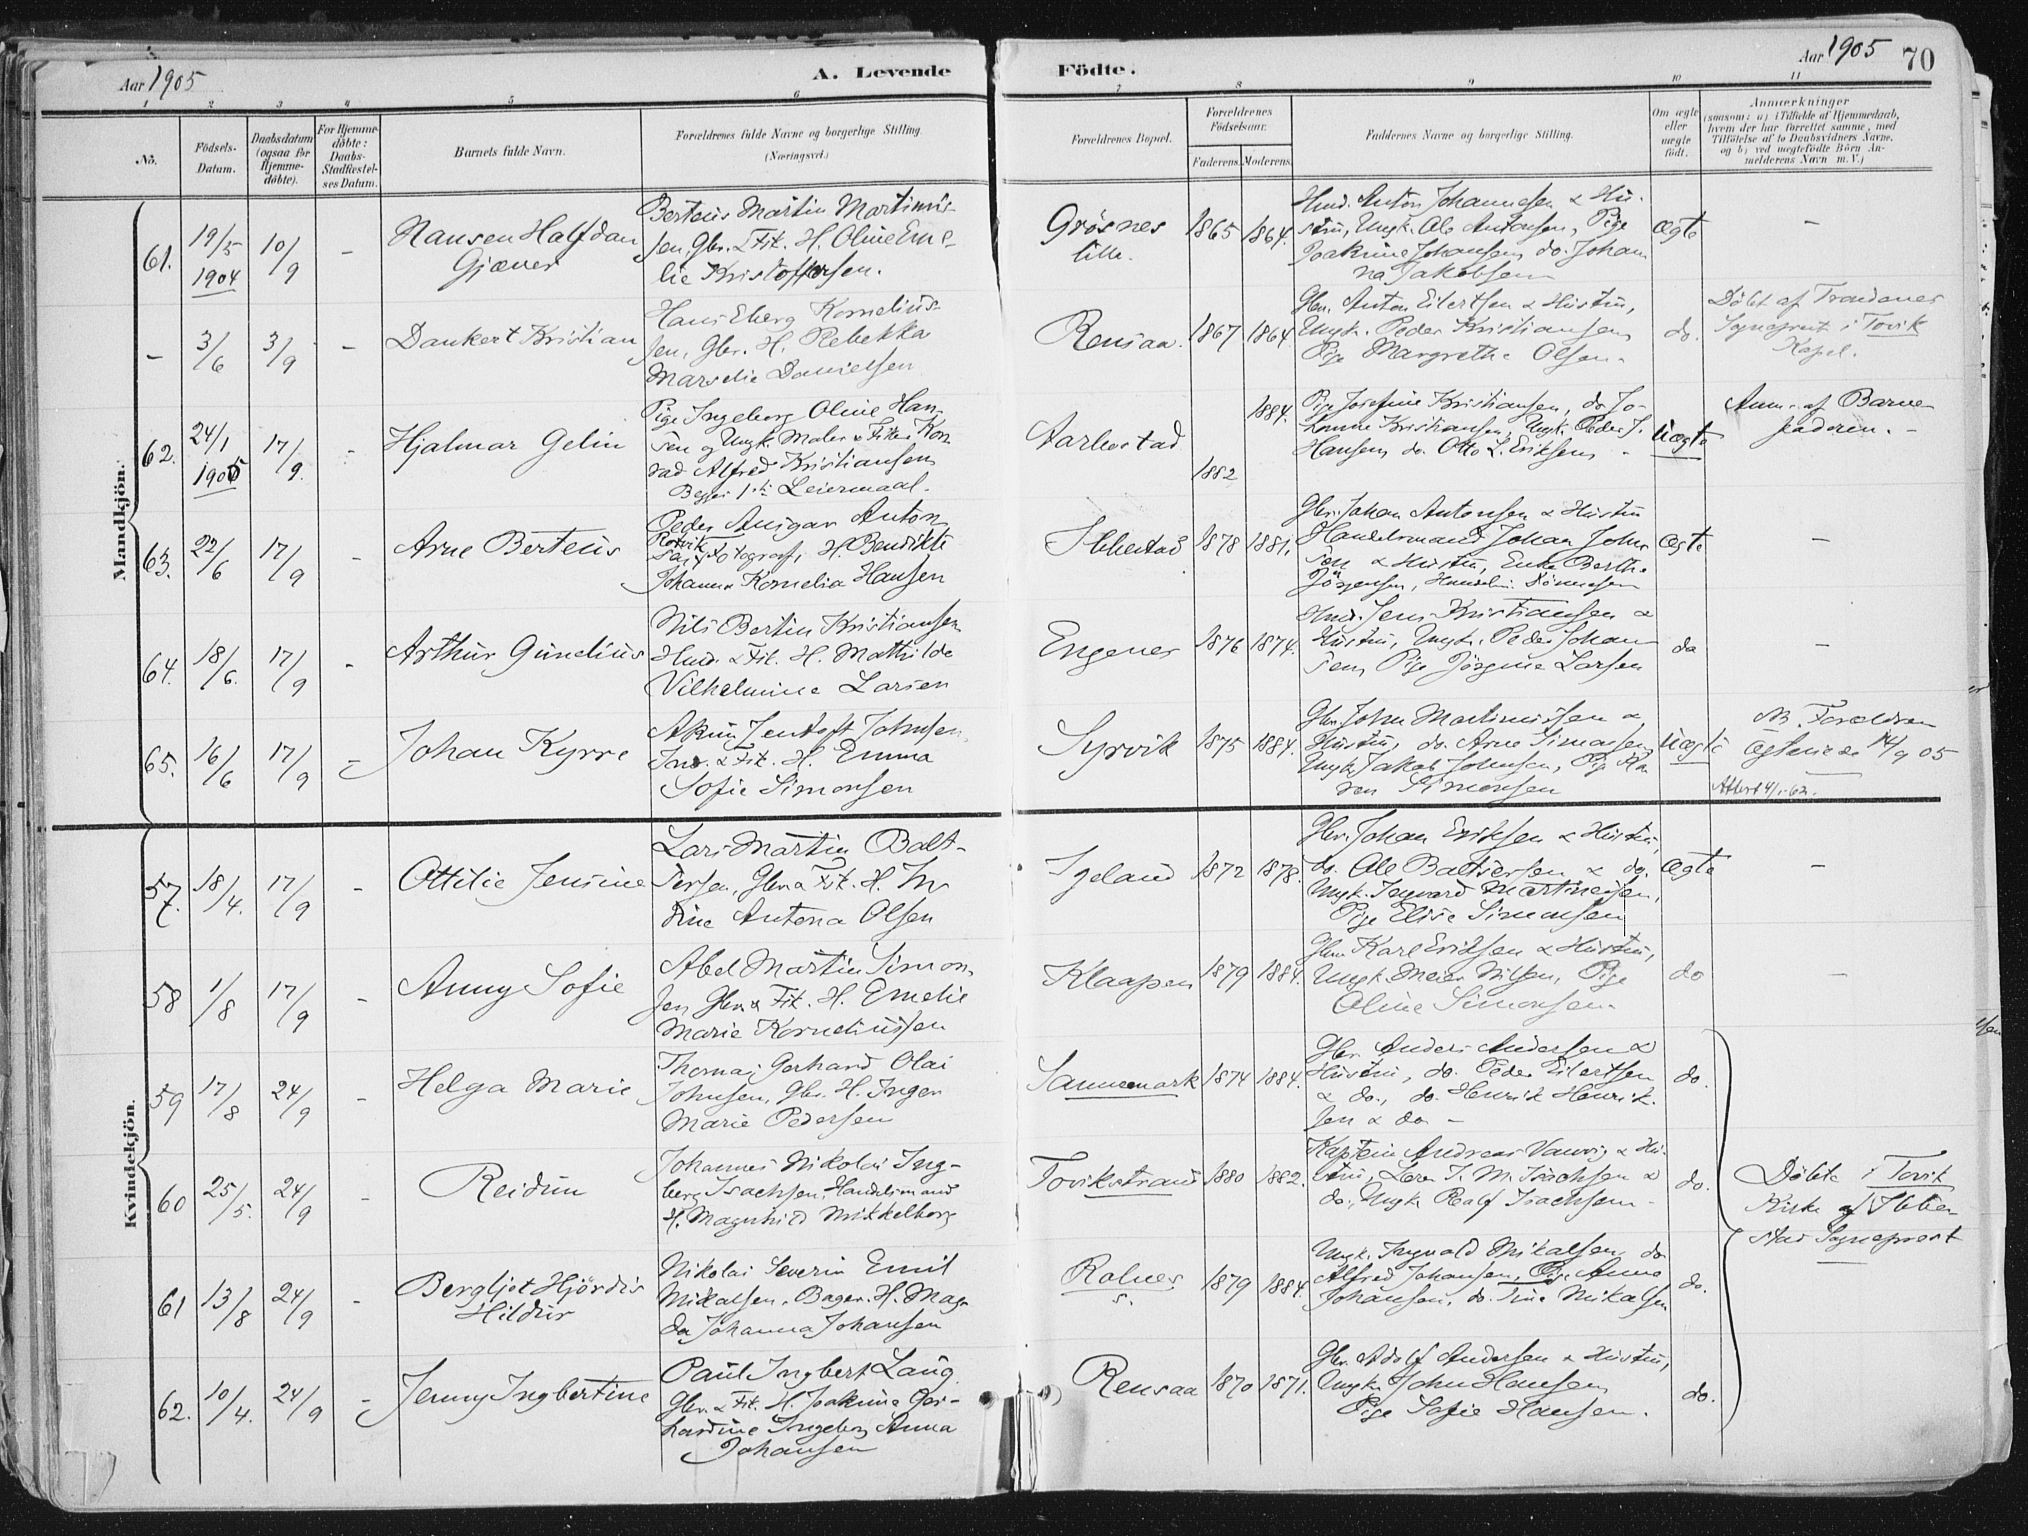 Aar 1905
A. Levende
Födte.
Aar 1905
70
1 2 3 4 5 6 7 8 9 10 11
No.
Födsels-Datum.
Daabsdatum (ogsaa for Hjemme-döbte).
For Hjemme-döbte: Daabs-Stadfæstel-ses Datum.
Barnets fulde Navn.
Forældrenes fulde Navne og borgerlige Stilling.
(Næringsvei.)
Forældrenes Bopæl.
Forældrenes Födselsaar.
Faderens. Moderens.
Faddernes Navne og borgerlige Stilling.
Om ægte eller uægte födt.
Anmærkninger
(saasom: a) i Tilfælde af Hjemmedaab,
hvem der har forrettet samme, med
Tilföielse af to Daabsvidners Navne,
og b) ved uægtefödte Börn An-
melderens Navn m. V.)
Mandkjön.
61. 19/5 1904 10/9 -
Nansen Halfdan
Gjæver
Berteus Martin Martinus-
sen, Gbr. & Fisk. H. Oline Eme-
lie Kristoffersen.
Grösnes
lille.
1865 1864.
Hmd. Anton Johannesen & Hu-
stru, Ungk. Ole Antonsen, Pige
Joakime Johansen, do. Johan
na Jakobsen
Ægte
-
- 3/6 3/9 -
Dankert Kristian
Hans Eberg Kornelius-
sen, Gbr. H. Rebekka
Marselie Danielsen
Rensaa. 1867 1864
Gbr. Anton Eilertsen & Hustru,
Ungk. Peder Kristiansen
Pige Margrethe Olsen.
do.
Döbt af Trondenes
Sogneprest i Tovik
Kapel.
62. 24/1 1905 17/9. -
Hjalmar Gelin
Pige Ingeborg Oline Han-
sen og Ungk. Maler & Fisker Kon
rad Alfred Kristiansen
Begges 1ste Leiermaal.
Aarbostad
1882
1884.
Pige Josefine Kristiansen, do. Jo-
Hansen do. Otto L. Eriksen
Uægte
Anm. af Barne-
faderen. -
63. 22/6 17/9 -
Arne Berteus
Peder Ansgar Anton
Rotvik
sen, Fotograf, H. Bendikte
Johanna Kornelia Hansen
Ibbestad 1878 1881.
Gbr. Johan Antonsen & Hustru
Handelsmand Johan John
sen & Hustru, Enke Berthe
Jörgensen,
Ægte
-
64. 18/6. 17/9 -
Arthur Gunelius
Nils Bertin Kristiansen
Hmd. & Fisk. H. Mathilde
Vilhelmine Larsen
Engenes 1876 1874.
Hmd. Jens Kristiansen &
Hustru, Ungk. Peder Johan
sen, Pige Jörgine Larsen
do
-
65. 16/6 17/9 -
Johan Kyrre
Akim Jentoft Johnsen,
Ind. & Fisk. H. Emma
Sofie Simonsen
Syrvik 1875 1884.
Gbr. John Martinussen &
Hustru, do. Arne Simonsen
Ungk. Jakob Johnsen, Pige Ka
ren Simonsen
Uægte
NB. Forældrene
Ægteviede 14/9 05
Attest 4/1-62.
Kvindekjön.
57. 18/4. 17/9 -
Ottilie Jensine
Lars Martin Balt-
sersen, Gbr. & Fisk. H. In
dine Antona Olsen
Igeland 1872 1878.
Gbr. Johan Eriksen & Hustru,
do. Ole Baltsersen & do.
Ungk. Ingvard Martinussen,
Pige Elise Simonsen
Ægte
-
58 1/8 17/9 -
Anny Sofie
Abel Martin Simon-
sen Gbr. & Fisk. H. Emelie
Marie Korneliussen
Klaapen 1879 1884.
Gbr. Karl Eriksen & Hustru,
Ungk. Meier Nilsen, Pige
Oline Simonsen.
do
-
59 17/8 24/9 -
Helga Marie
Thomas Gerhard Olai
Johnsen, Gbr. H. Inger
Marie Pedersen
Sannemark 1874 1884.
Gbr. Anders Andersen &
Hustru, do. Peder Eilertsen
& do., do. Henrik Henrik-
sen & do -
do.
60 25/5. 24/9 -
Reidun
Johannes Nikolai Ing-
berg Isachsen, Handelsmand
H. Magnhild Mikkelborg
Tovikstrand 1880 1882.
Kaptein Andreas Vaavig & Hu-
stru, J. M. Isachsen &
do., Ungk. Ralf Isachsen -
do.
Döbte i Tovik
Kirke af Ibbe-
stad Sogneprest
61 13/8 24/9 -
Bergljot Hjördis
Hildur
Nikolai Severin Emil
Mikalsen, Bager. H. Mag-
da Johanna Johansen
Rolnes
s.
1879 1884.
Ungk. Ingvald Mikalsen, do
Alfred Johansen, Pige Anna
Johansen, do. Tine Mikalsen
do.
62. 10/4. 24/9 -
Jenny Ingbertine
Paul Ingbert Laug
Gbr. & Fisk. H. Joakime Ger-
hardine Ingeborg Anna
Johansen
Rensaa 1870 1871.
Gbr. Adolf Andersen & Hustru,
Ungk. John Hansen
Pige Sofie Hansen.
do.